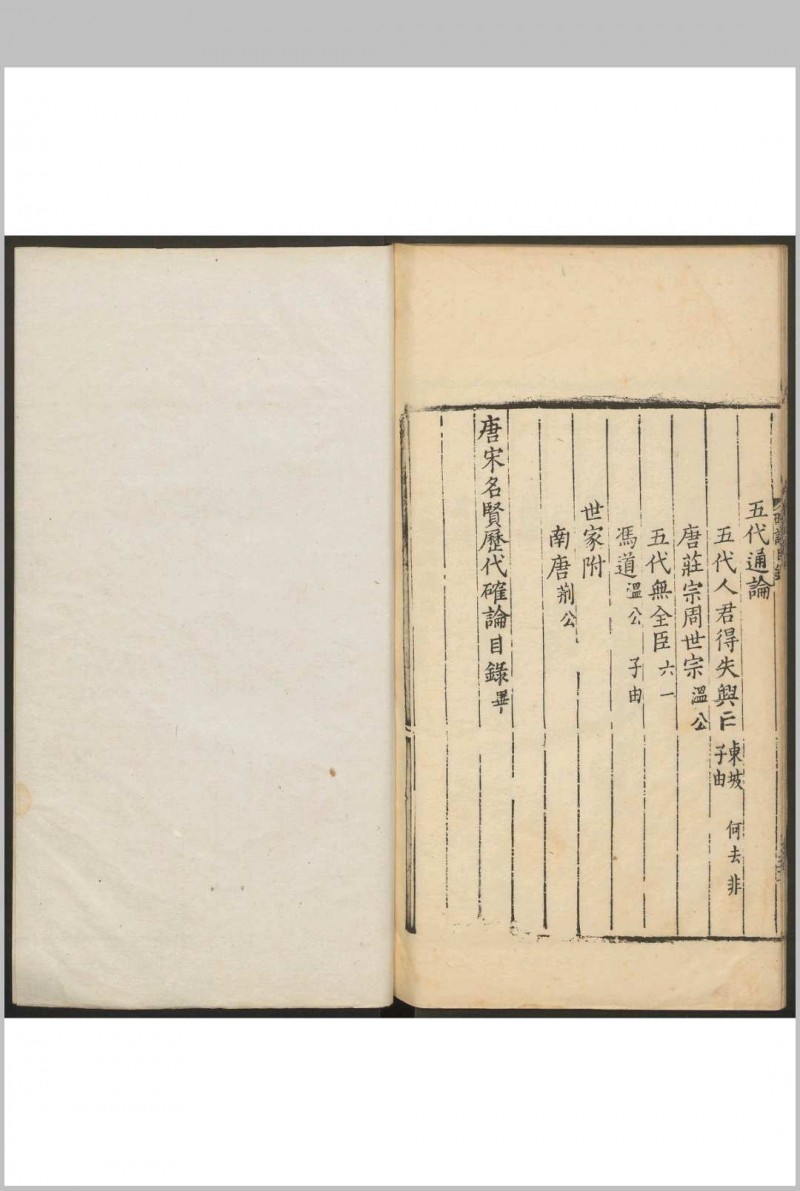 五代通論
五代人君得失興亡 東坡 何去非 子由
唐莊宗周世宗 溫公
五代無全臣 六一
馮道 溫公 子由
世家附
南唐 荊公
唐宋名賢歷代確論目錄畢